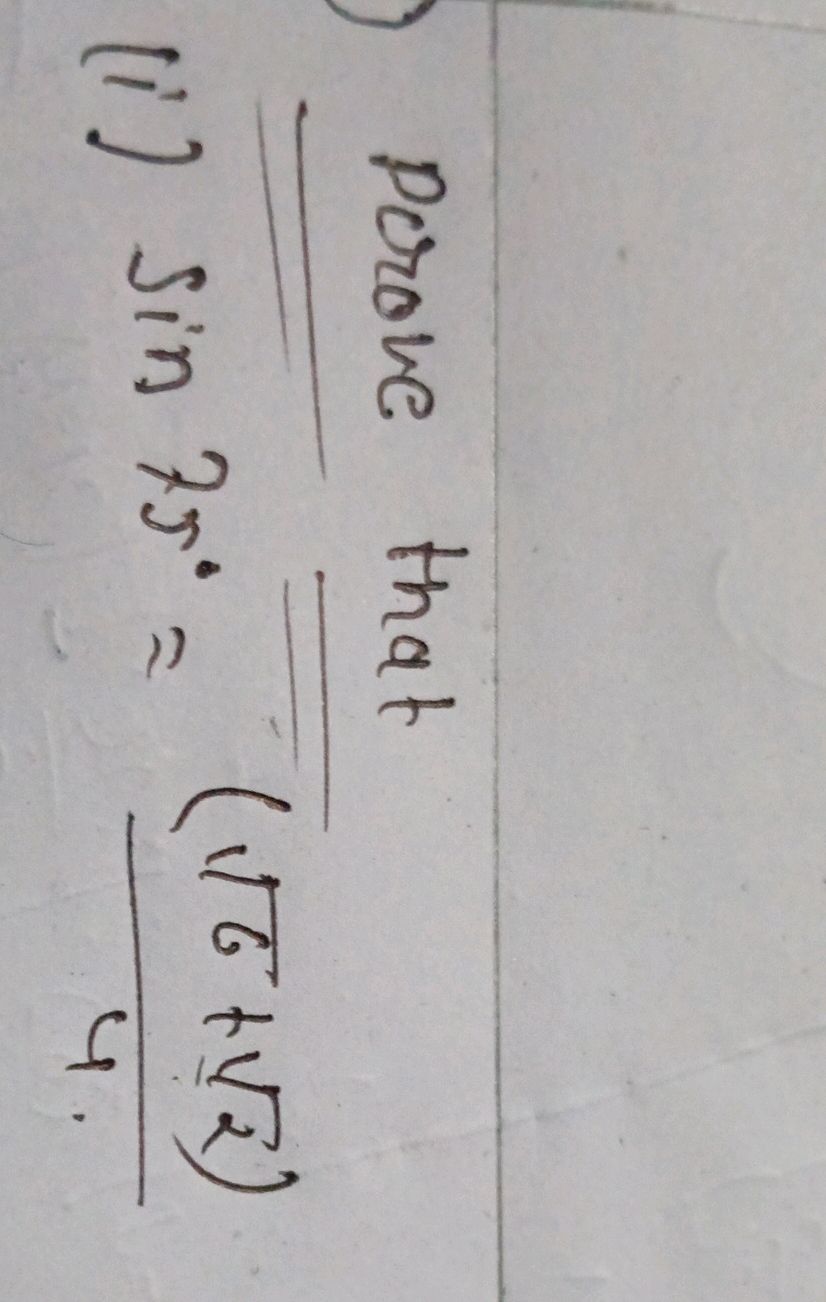 Perove that
(i) Sin 75° = (√6 + √2)
4.